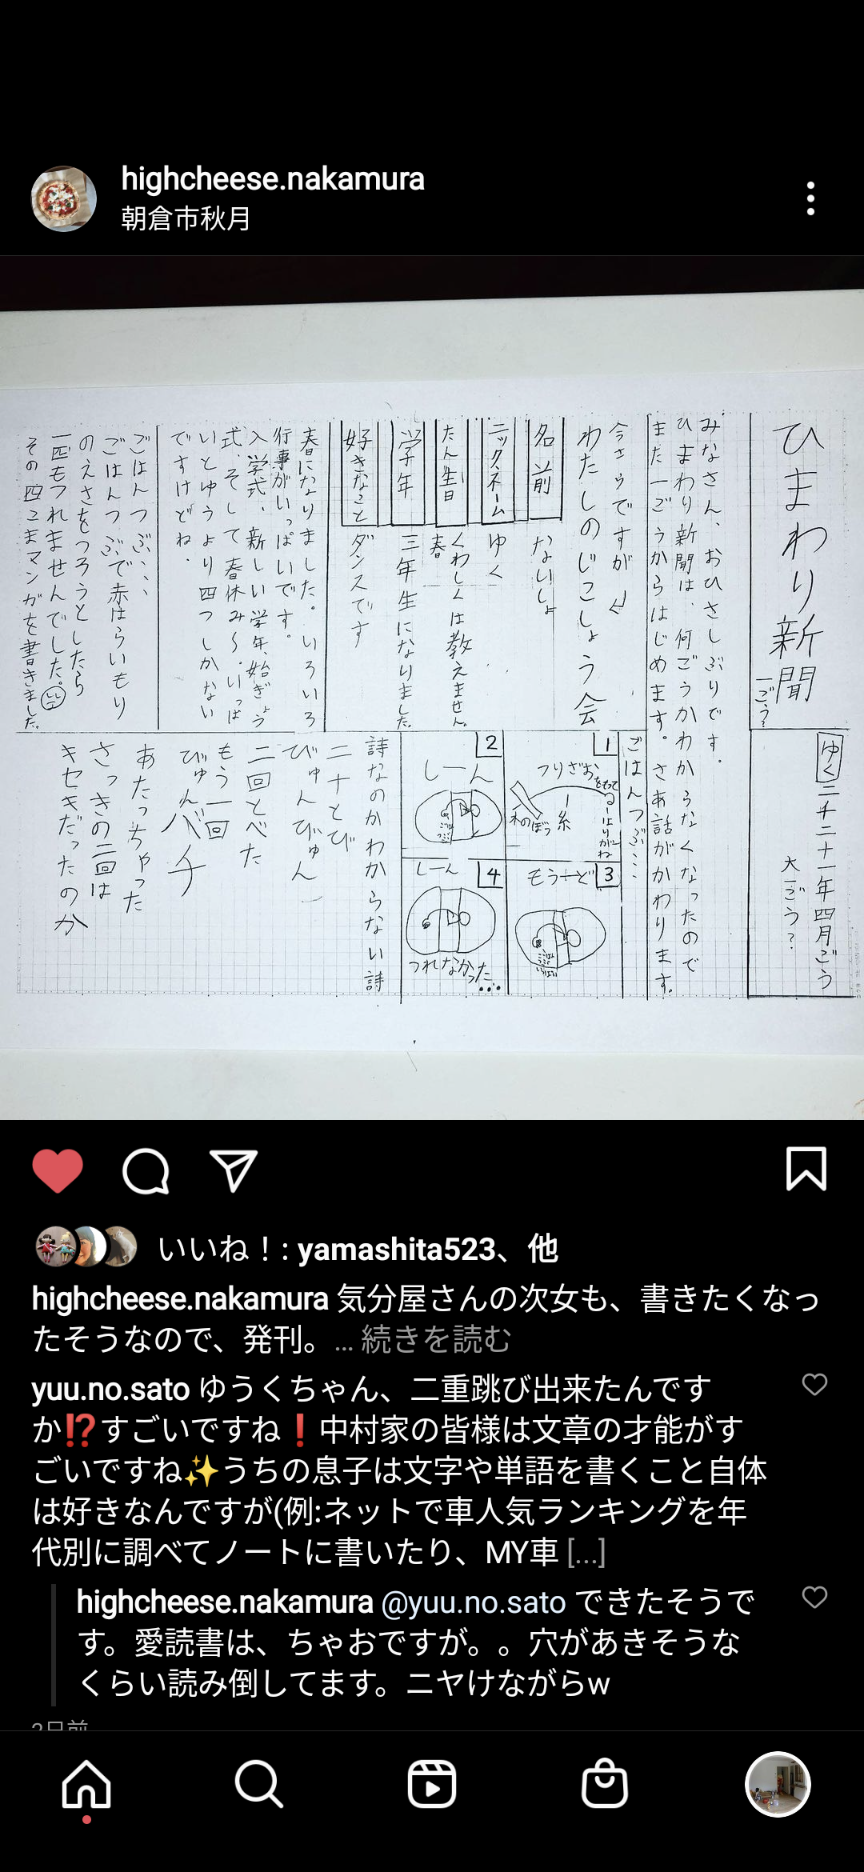 highcheese.nakamura
朝倉市秋月
ひまわり新聞
一ごう?
ゆく
二千二十一年四月ごう
大一ごう?
みなさん、おひさしぶりです。
ひまわり新聞は、何ごうかわからなくなったので
また一ごうからはじめます。さあ話がかわります。
今さらですが
わたしのじこしょう会
名前
ないしょ
ニックネーム
ゆく
たん生日
くわしくは教えません。
春
学年
三年生になりました。
好きなこと
ダンスです
春になりました。いろいろ
行事がいっぱいです。
入学式、新しい学年、始ぎょう
式、そして春休み〜。いっぱ
いとゆうより四つしかない
ですけどね、
ごはんつぶ、、、
ごはんつぶで赤はらいもり
のえさをつろうとしたら
一匹もつれませんでした。
その四こまマンガを書きました。
ごはんつぶ…
1
つりざお
糸
木のぼう
2
しーん
3
もう一ど
4
しーん
つれなかった…
詩なのかわからない詩
二十とび
びゅんびゅん
二回とべた
もう一回
びゅんバチ
あたっちゃった
さっきの二回は
キセキだったのか
いいね！: yamashita523、他
highcheese.nakamura 気分屋さんの次女も、書きたくなっ
たそうなので、発刊。... 続きを読む
yuu.no.sato ゆうくちゃん、二重跳び出来たんです
か⁉️すごいですね❗中村家の皆様は文章の才能がす
ごいですね✨うちの息子は文字や単語を書くこと自体
は好きなんですが(例:ネットで車人気ランキングを年
代別に調べてノートに書いたり、MY車 [...]
highcheese.nakamura @yuu.no.sato できたそうで
す。愛読書は、ちゃおですが。。穴があきそうな
くらい読み倒してます。ニヤけながらw
2日前